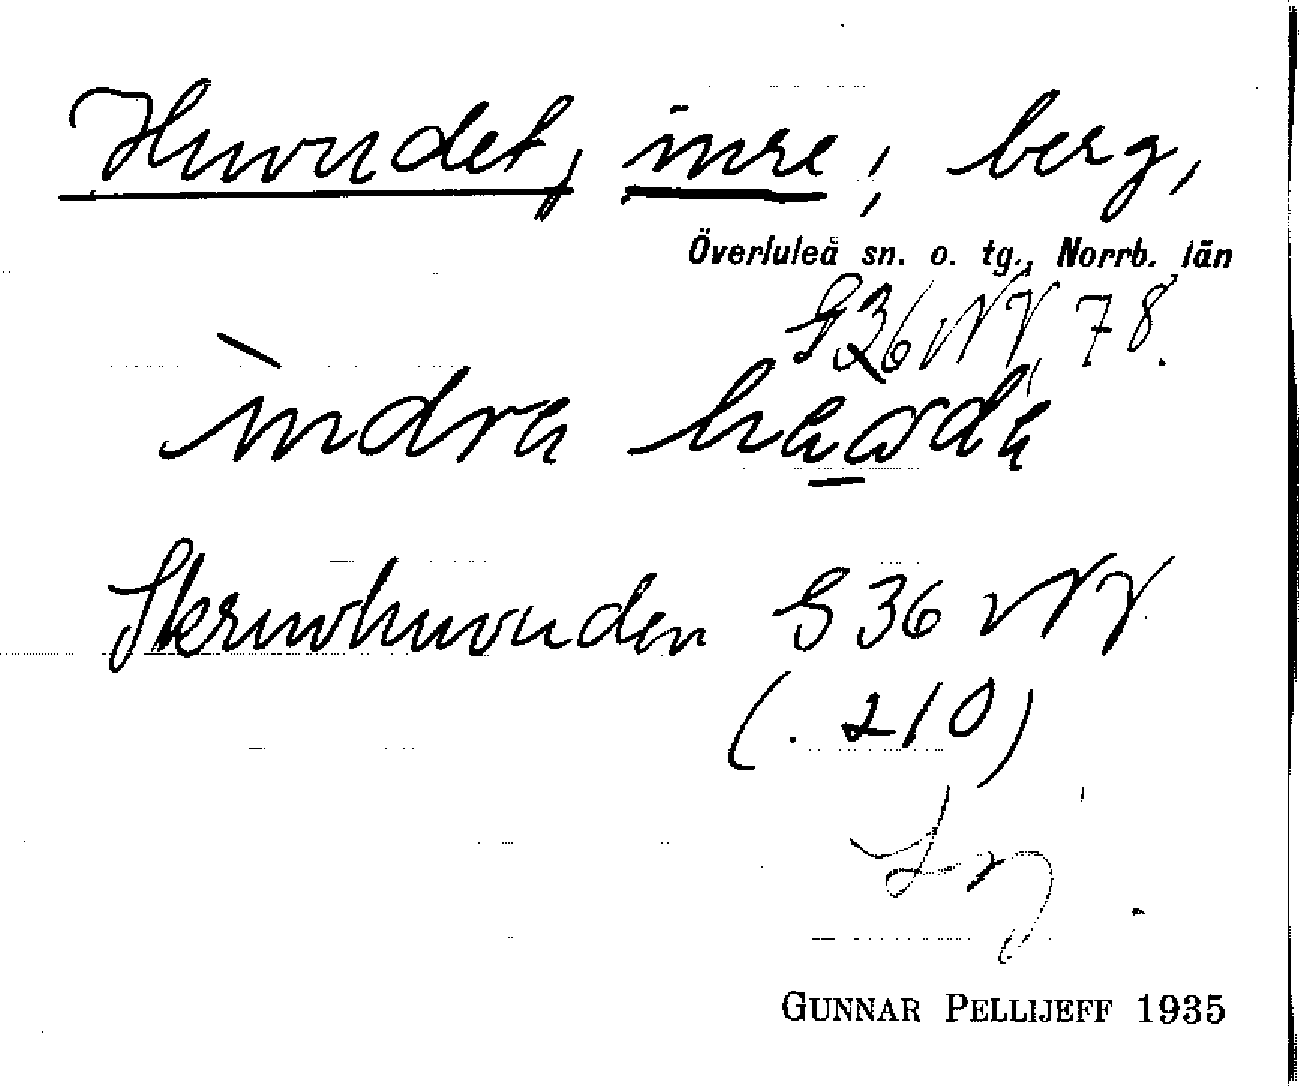 Huvudet, inre; berg,
Överluleå sn. o. tg., Norrb. län
G36 NV, 78.
ìndra
huvuden G36 NV
(. 210)
GUNNAR PELLIJEFF 1935